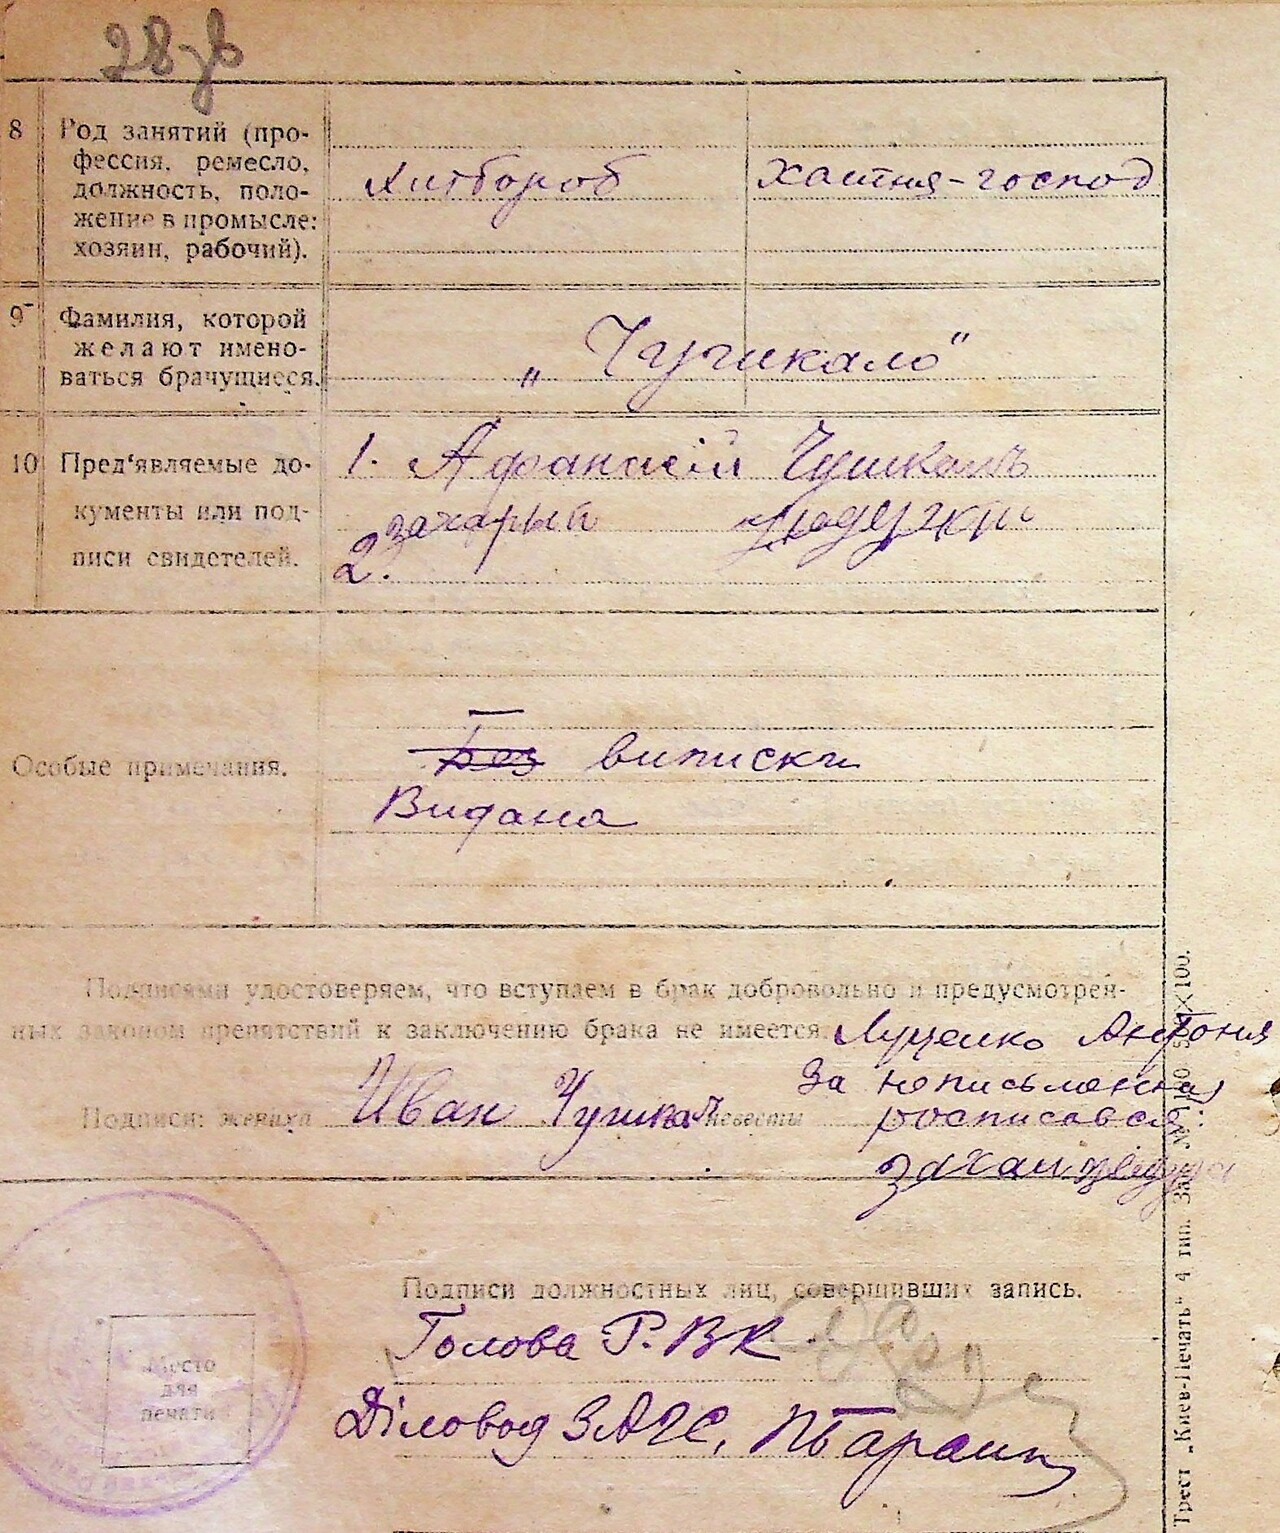 28зв
8 Род занятий (про-
фессия, ремесло,
должность, поло-
жение в промысле:
хозяин, рабочий).
Хлібороб
Хатня-господ
9 Фамилия, которой
желают имено-
ваться брачущиеся.
„Чучукало"
10 Пред'являемые до-
кументы или под-
писи свидетелей.
1. Афанасій
2. Захарый
Особые примечания.
Без виписки
Видана
Подписями удостоверяем, что вступаем в брак добровольно и предусмотрен-
ных законом препятствий к заключению брака не имеется.
Луценко Антонія
За неписьменная
росписався:
Подписи: жениха Иван невесты
Подписи должностных лиц, совершивших запись.
Голова Р.ВК
Діловод ЗАГС,
Место
для
печати
Трест „Киев-Печать" 4 тип.